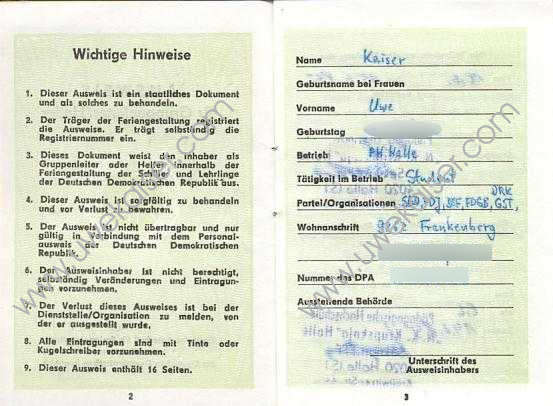 Wichtige Hinweise
1. Dieser Ausweis ist ein staatliches Dokument
und als solches zu behandeln.
2. Der Träger der Feriengestaltung registriert
die Ausweise. Er trägt selbständig die
Registriernummer ein.
3. Dieses Dokument weist den Inhaber als
Gruppenleiter oder Helfer innerhalb der
Feriengestaltung der Schüler und Lehrlinge
der Deutschen Demokratischen Republik aus.
4. Dieser Ausweis ist sorgfältig zu behandeln
und vor Verlust zu bewahren.
5. Der Ausweis ist nicht übertragbar und nur
gültig in Verbindung mit dem Personal-
ausweis der Deutschen Demokratischen
Republik.
6. Der Ausweisinhaber ist nicht berechtigt,
selbständig Veränderungen und Eintragun-
gen vorzunehmen.
7. Der Verlust dieses Ausweises ist bei der
Dienststelle/Organisation zu melden, von
der er ausgestellt wurde.
8. Alle Eintragungen sind mit Tinte oder
Kugelschreiber vorzunehmen.
9. Dieser Ausweis enthält 16 Seiten.
2
Name Kaiser
Geburtsname bei Frauen
Vorname Uwe
Geburtstag
Betrieb PH Halle
Tätigkeit im Betrieb Student
DRK
Partei/Organisationen SED, FDJ, DSF, FDGB, GST,
Wohnanschrift 9262 Frankenberg
Nummer des DPA
Ausstellende Behörde
Unterschrift des
Ausweisinhabers
3
www.uwekaiser.com
www.uwekaiser.com